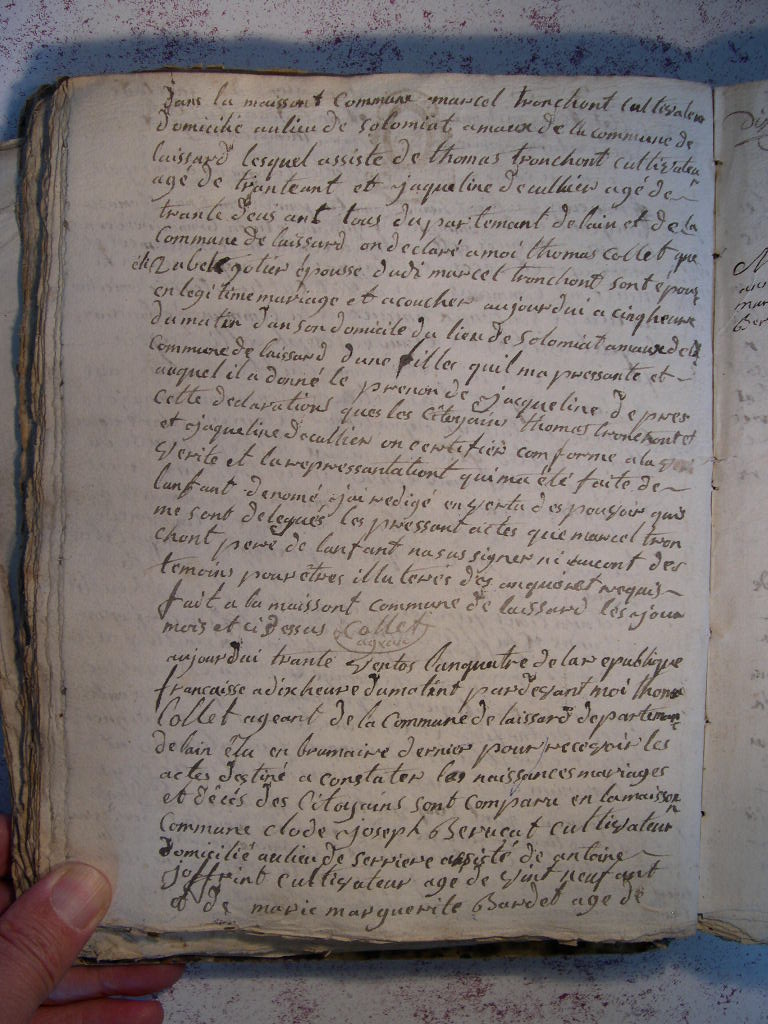 dans la maissont Commune marcel tronchont cultivateur
domicilié au lieu de Solomiat amaux de la commune de
laissard lesquel assiste de thomas tronchont cultivateur
agé de tranteant et jaqueline decullier agé de
trante deus ant tous du partemant de lain et de la
Commune de laissard on declaré a moi thomas Collet que
eli Zabelt gotier épousse dudi marcel tronchont sont épous
en legitime mariage et acoucher aujourdui a cinq heure
du matin dans on domicile du lieu de Solomiat amaux de la
Commune de laissard dune filles quil ma pressante et
auquel il a donné le prenon de jacqueline de pres
cette declarations ques les Citoyain thomas tronchont et
et jaqueline decullier on certifier comforme a la
verite et la repressantationt qui ma été faite de
lanfant denomé jai redigé en vertu des pouvoir qui
me sont delegués les pressant actes que marcel tron
chont pere de lanfant na sus signer ni aucont des
temoins pour êtres illuterés des anquis et requis
fait a la maissont Commune de laissard les jour
mois et ci dessus Collet
ageant
aujourdui trante ventos lanquatre de la republique
francaisse a dix heure du matint par devant moi thomas
Collet ageant de la Commune de laissard departemant
de lain élu en brumaire dernier pour recevoir les
actes destiné a constater les naissances mariages
et décés des Citoyains sont comparu en la maisson
Commune clode joseph Berucat cultivateur
domicilié au lieu de serriere assisté de antoine
joffrint cultivateur agé de vint neuf ant
& de marie marguerite Bardet age de